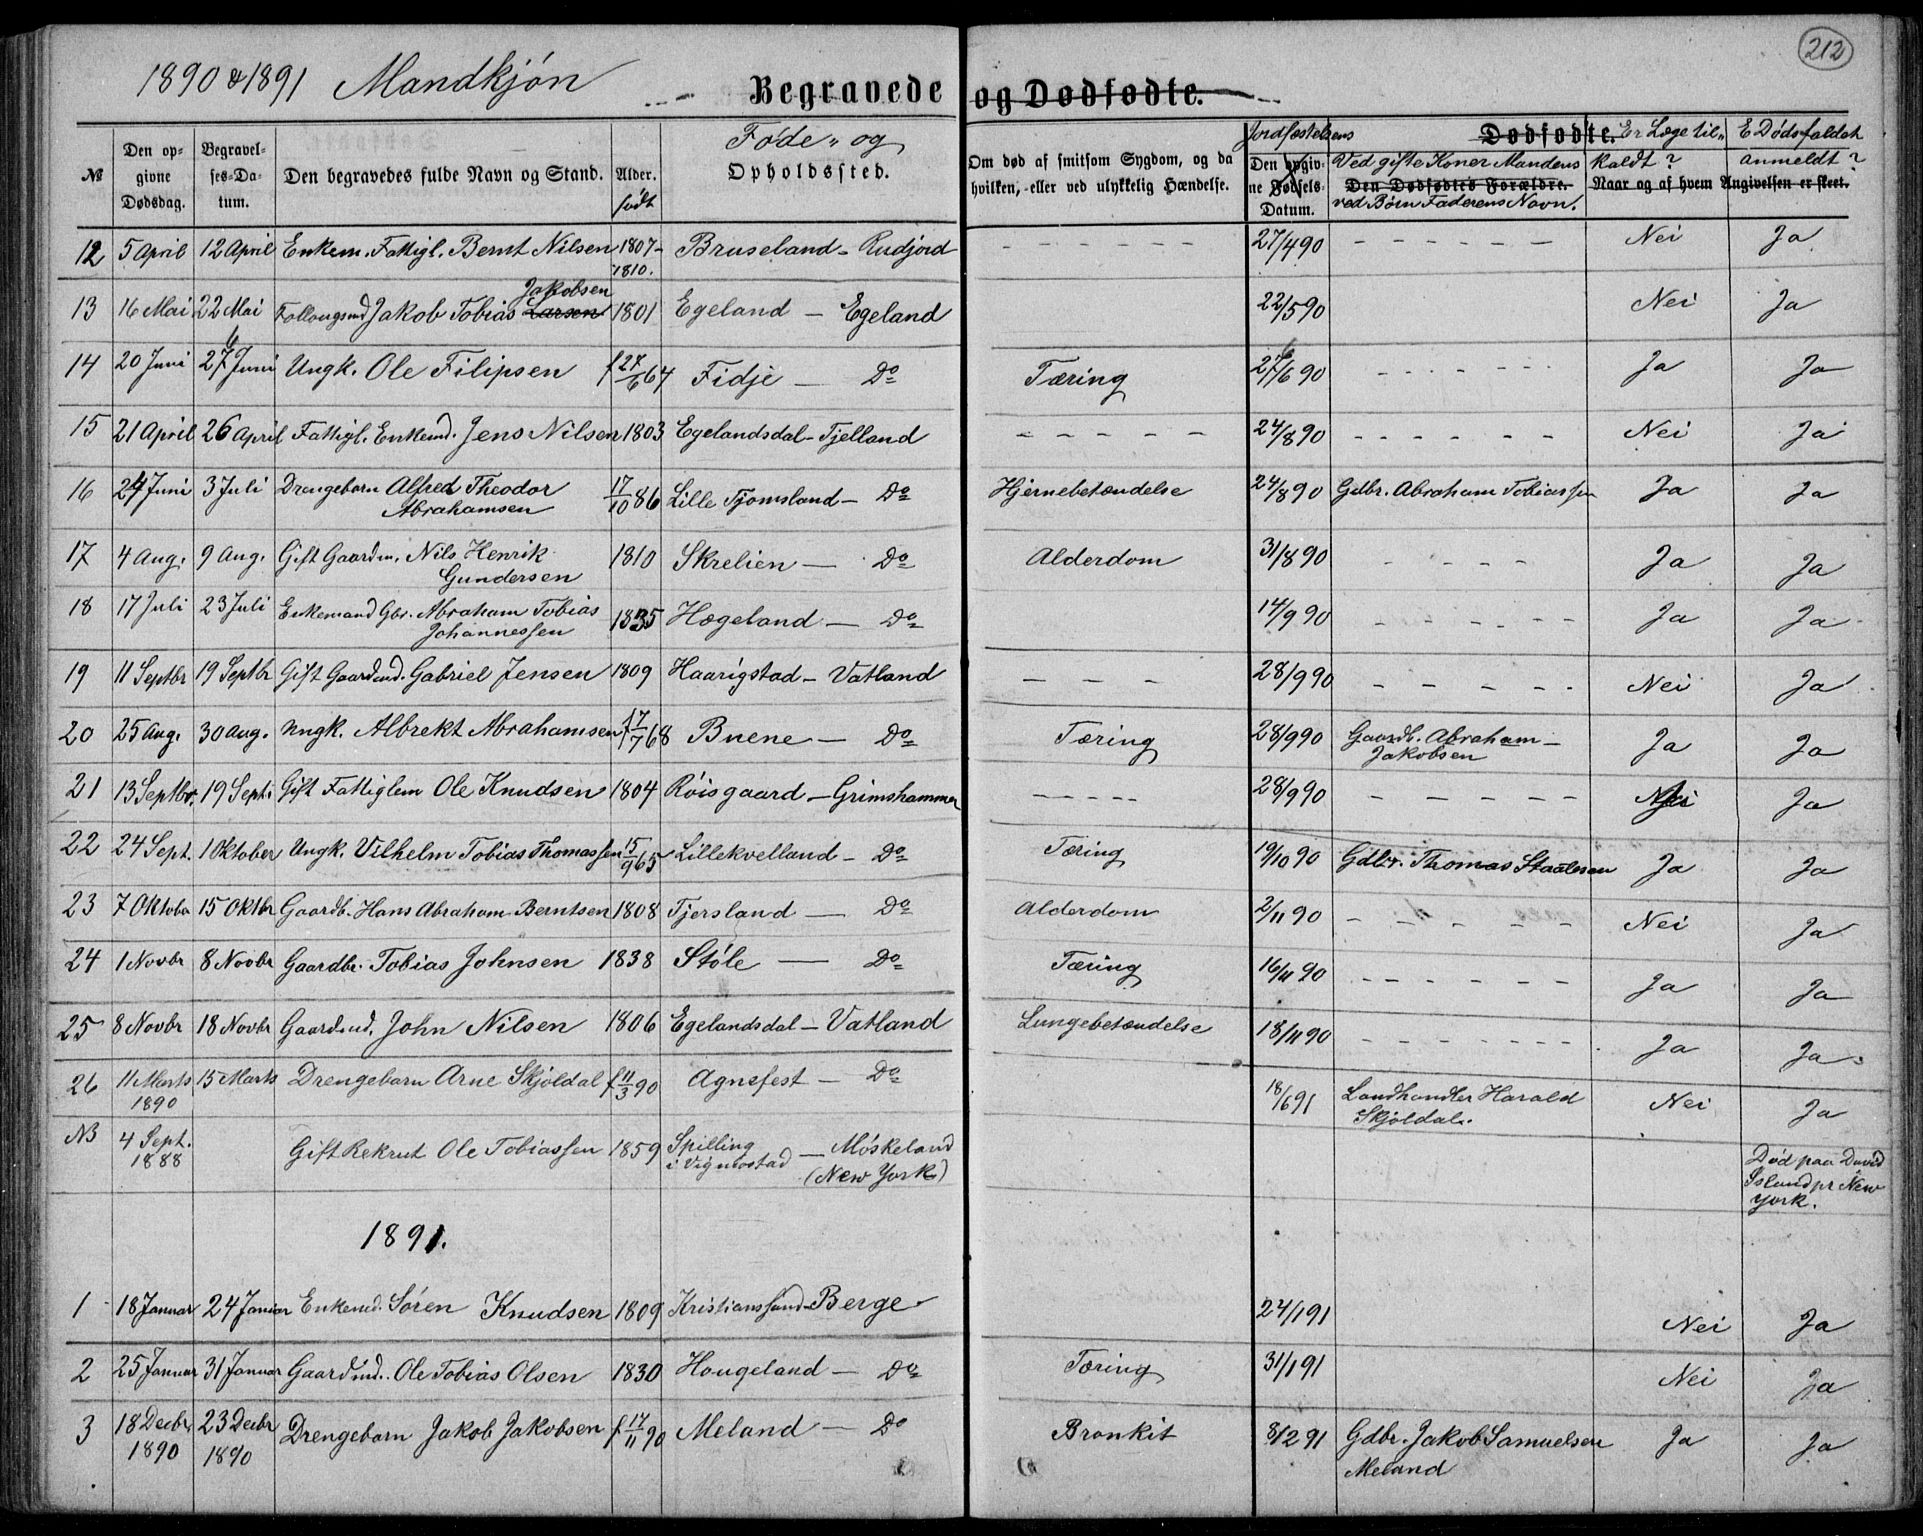 212
1890 & 1891 Mandkjøn
Begravede og Dødfødte.
Føde- og
Jordfæstelsens Dødfødte. Er Læge til- E Dødsfaldet
№ Den opgivne Dødsdag. Begravelses-Datum. Den begravedes fulde Navn og Stand. Alder. født Opholdssted. Om død af smitsom Sygdom, og da hvilken, eller ved ulykkelig Hændelse. Den opgivne Fødsels-Datum. Ved gifte Koner Mandens Den Dødfødtes Forældre. ved Børn Faderens Navn. kaldt? anmeldt? Naar og af hvem Angivelsen er skeet.
12 5 April 12 April Enkem. Fattigl. Bernt Nilsen 1807-1810. Bruseland - Rudjord - - - - - - 27/4 90 - - - - - - Nei Ja
13 16 Mai 22 Mai Follaugsmd Jakob Tobias Larsen Jakobsen 1801 Egeland — Egeland 22/5 90 Nei Ja
14 20 Juni 27 6 Juni Ungk. Ole Filipsen f 27/6 64 Fidje — Do Tæring 27/6 90 - - - - - - Ja Ja
15 21 April 26 April Fattigl. Enkemd. Jens Nilsen 1803 Egelandsdal - Tjelland - - - - - 24/8 90 - - - - - - Nei Ja
16 24 Juni 3 Juli Drengebarn Alfred Theodor Abrahamsen 17/10 86 Lille Tjomsland - Do Hjernebetændelse 24/8 90 Gdbr. Abraham Tobiassen Ja Ja
17 4 Aug. 9 Aug. Gift Gaardm. Nils Henrik Gundersen 1810 Skrelien — Do Alderdom 31/8 90 - - - - Ja Ja
18 17 Juli 23 Juli Enkemand Gbr. Abraham Tobias Johannessen 1835 Hægeland — Do 14/9 90 - - - - - - Ja Ja
19 11 Septbr 19 Septbr Gift Gaardmd. Gabriel Jensen 1809 Haarigstad - Vatland - - - 28/9 90 - - - - - Nei Ja
20 25 Aug. 30 Aug. Ungk. Albrekt Abrahamsen f 17/7 68 Buene — Do Tæring 28/9 90 Gaardb. Abraham Jakobsen Ja Ja
21 13 Septbr. 19 Sept. Gift Fattiglem Ole Knudsen 1804 Røisgaard - Grimshammer - - - - - 28/9 90 - - - - - Nei Ja
22 24 Sept. 1 Oktober Ungk. Vilhelm Tobias Thomassen 15/9 65 Lillekvelland - Do Tæring 19/10 90 Gdbr. Thomas Staalesen Ja Ja
23 7 Oktober 15 Oktbr Gaardb. Hans Abraham Berntsen 1808 Tjersland — Do Alderdom 2/11 90 - - - - - Nei Ja
24 1 Novbr 8 Novbr Gaardbr. Tobias Johnsen 1838 Støle — Do Tæring 16/11 90 - - - - - - Ja Ja
25 8 Novbr 18 Novbr Gaardmd. John Nilsen 1806 Egelandsdal - Vatland Lungebetændelse 18/11 90 - - - - - - Ja Ja
26 11 Marts 1890 15 Marts Drengebarn Arne Skjøldal f 11/3 90 Agnefest — Do 18/6 91 Landhandler Harald Skjøldal. Nei Ja
NB 4 Sept. 1888 Gift Rekrut Ole Tobiassen 1859 Spilling i Vigmostad — Møskeland (New York) Død paa David Island pr New York.
1891.
1 18 Januar 24 Januar Enkemd. Søren Knudsen 1809 Kristianssand - Berge 24/1 91 Nei Ja
2 25 Januar 31 Januar Gaardmd. Ole Tobias Olsen 1830 Hougeland — Do Tæring 31/1 91 Nei Ja
3 18 Decbr. 1890 23 Decbr 1890 Drengebarn Jakob Jakobsen f 17/11 90 Meland — Do Bronkit 8/2 91 Gdbr. Jakob Samuelsen Meland Ja Ja